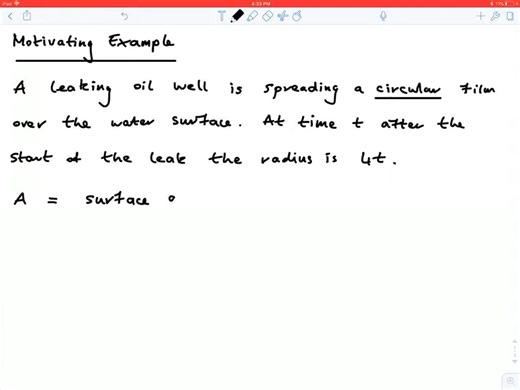 iPad
4:33 PM
Motivating Example
A leaking oil well is spreading a circular film
over the water surface. At time t after the
start of the leak the radius is 4t.
A = surface o